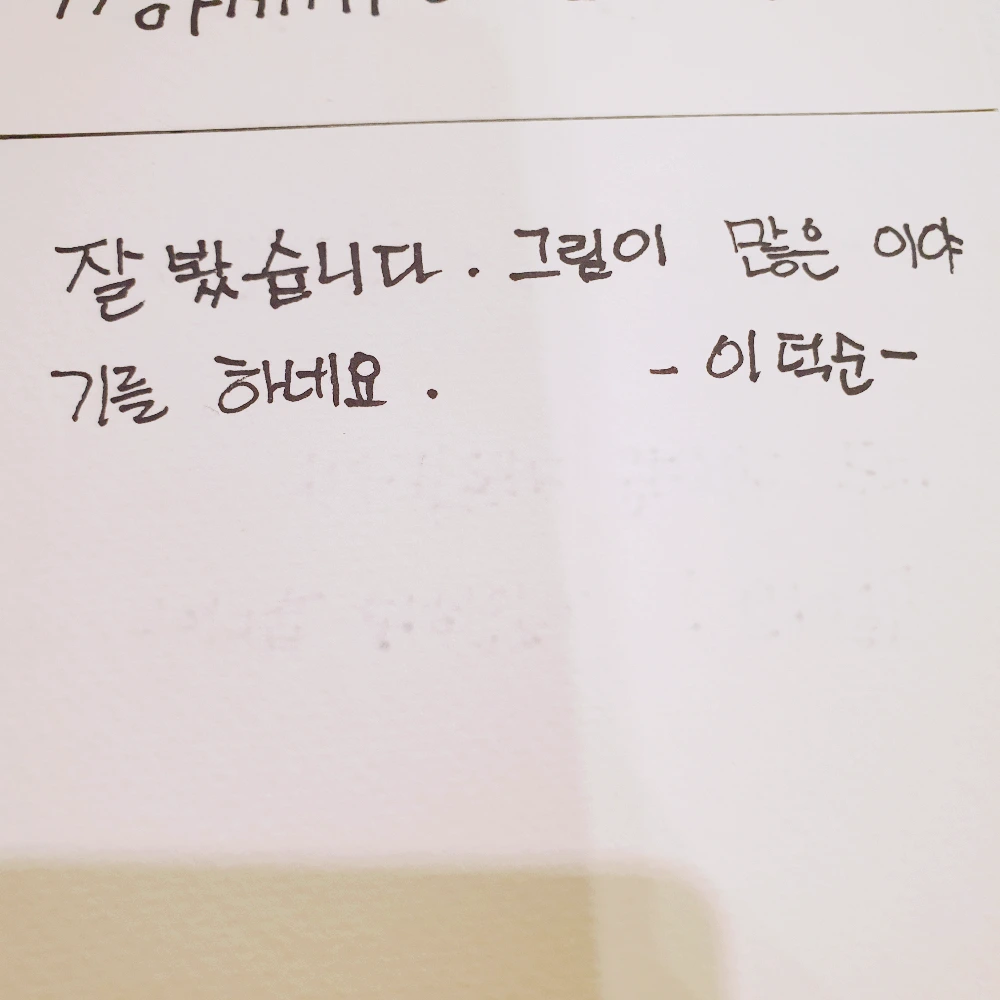 잘 봤습니다. 그림이 많은 이야
기를 하네요. - 이덕순 -